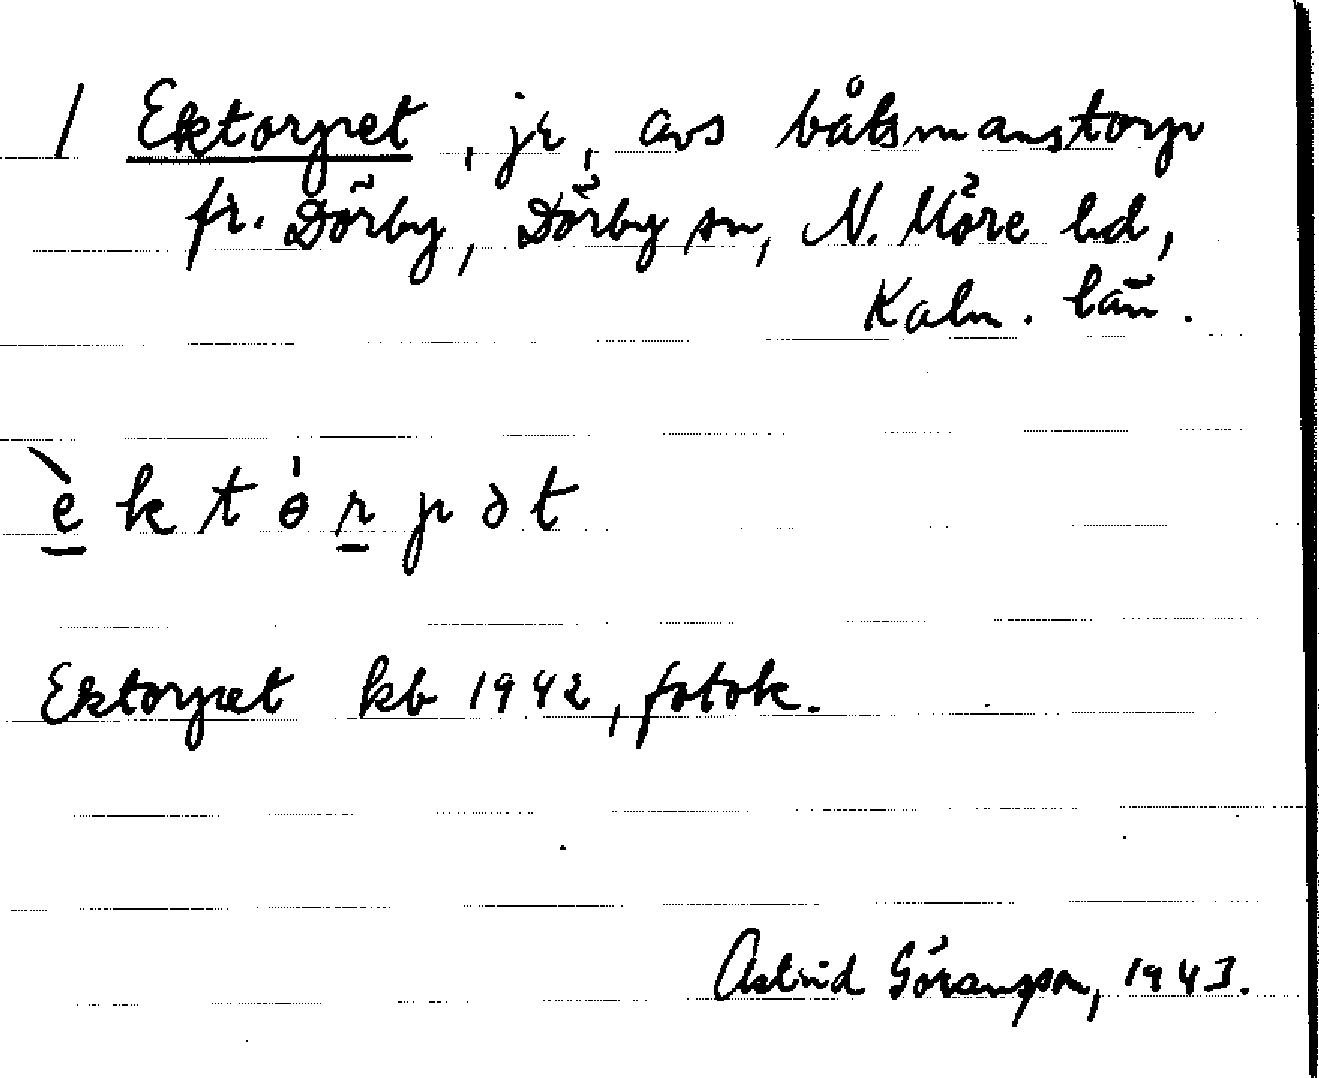 / Ektorpet, jr, avs båtsmanstorp
fr. Dörby, Dörby sn, N. Möre hd,
Kalm. län.
è k t ɵ́ r p ə t
Ektorpet kb 1942, fotok.
Astrid Göransson, 1943.